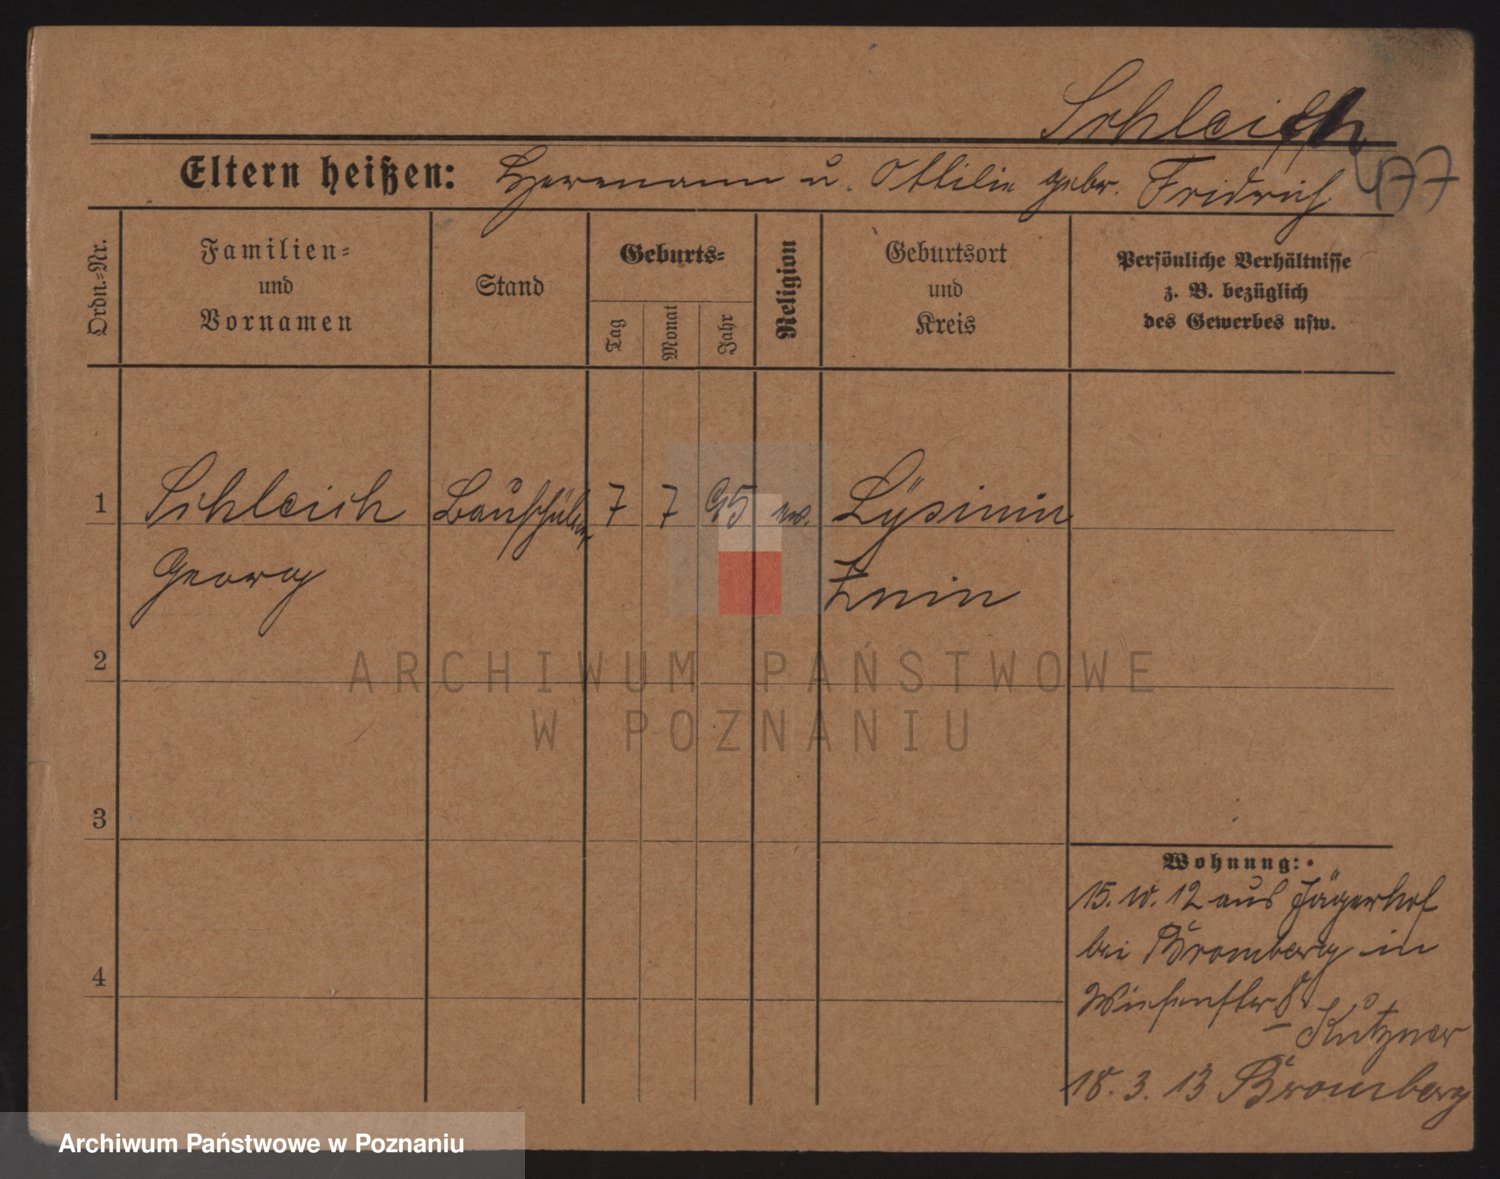 Schleich
477
Eltern heißen: Herrmann u. Ottilie gebr. Fridrich
Ordn.-Nr.
Familien-
und
Vornamen
Stand
Geburts-
Tag
Monat
Jahr
Religion
Geburtsort
und
Kreis
Persönliche Verhältnisse
z. B. bezüglich
des Gewerbes usw.
1
Schleich Bauschüler 7 7 95 ev. Lysinin
Georg Znin
2
ARCHIWUM PAŃSTWOWE
W POZNANIU
3
Wohnung:
15. 10. 12 aus Jägerhof
bei Bromberg in
4
Wiesenstr 8.
Kutzner
18. 3. 13 Bromberg
Archiwum Państwowe w Poznaniu